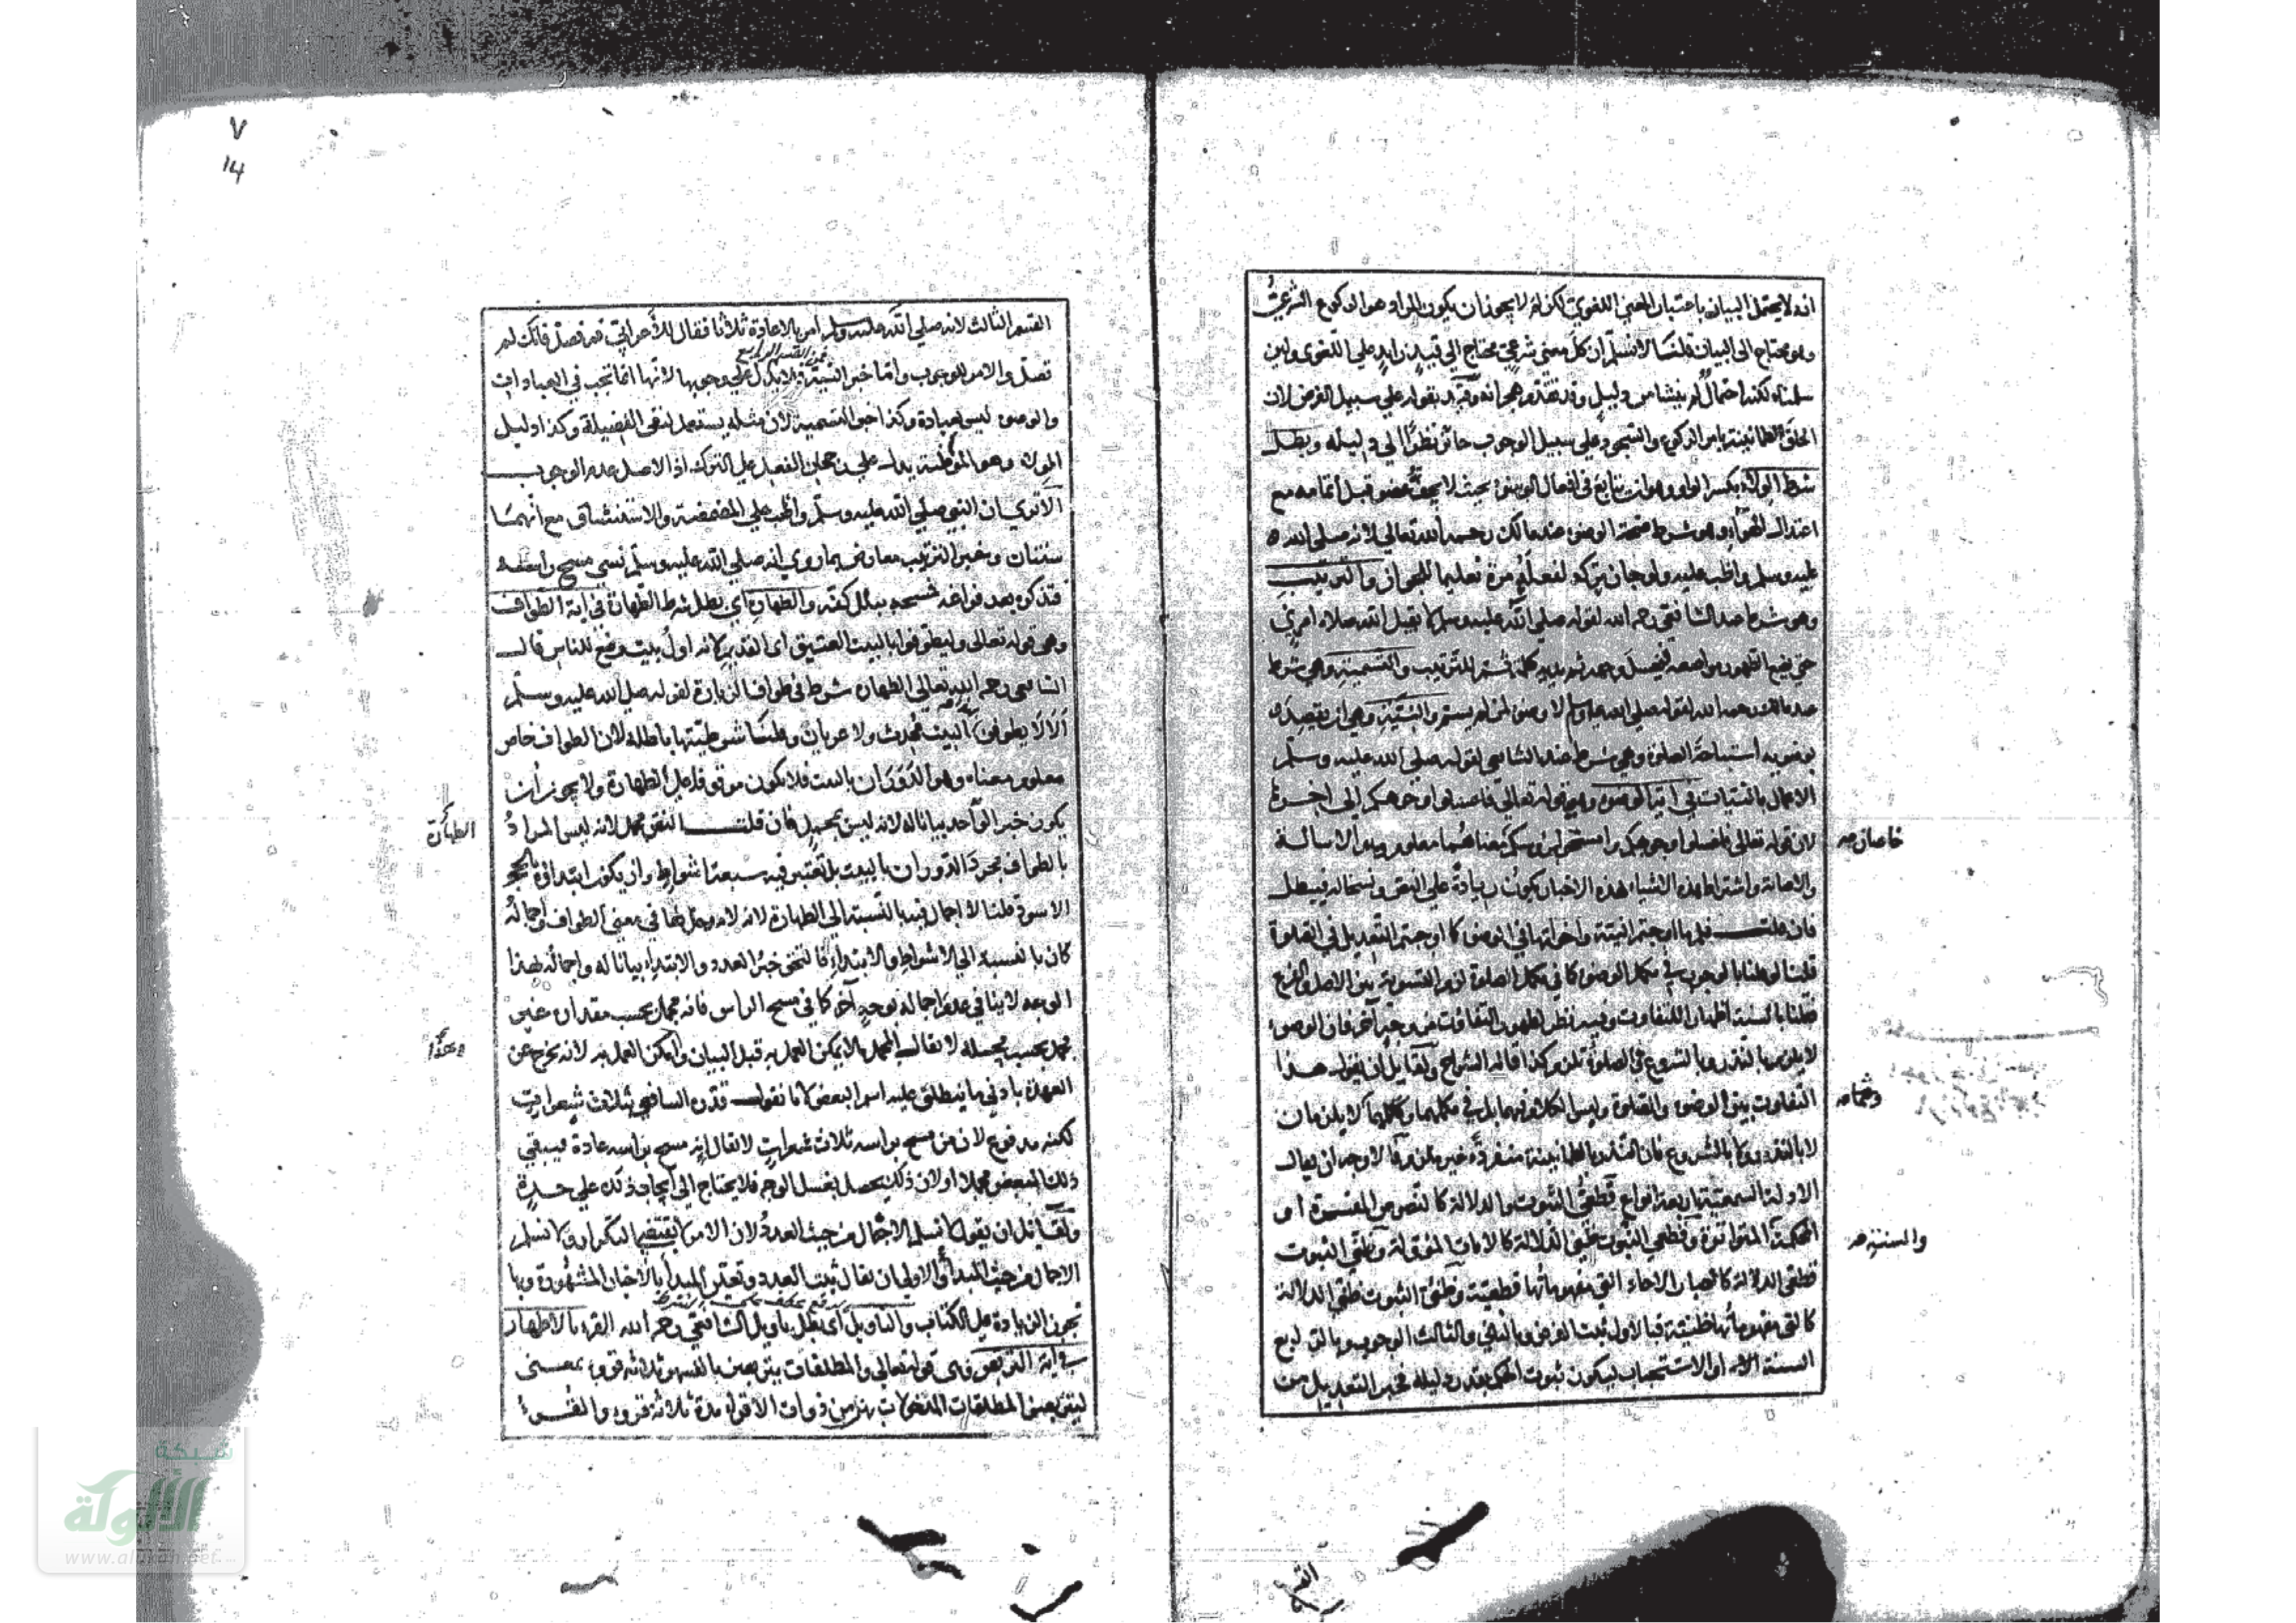 انه لا يحتمل البيان باعتبار المعنى اللغوي لكن لم لا يجوز ان يكون المراد هو الركوع الشرعي
وهو محتاج الى البيان قلنا لا نسلم ان كل معنى شرعي محتاج الي قيد زايد على اللغوى ولين
سلمناه لكنه احتمال لم ينشا من دليل وقد تقدم
على سبيل الفرض لان
الحاق الطمانينة بامر الركوع والسجود على سبيل الوجوب جائز نظرا الي دليله وبطل
شرط الولاء بكسر الواو وهو ان يتابع في افعال الوضوء بحيث لا يجف عضو قبل اتمامه مع
اعتدال الهواء وهو شرط صحة الوضوء عند مالك رحمه الله تعالي لانه صلى الله
عليه وسلم واظب عليه ولو جاز تركه لفعله مرة تعليما للجواز والترتيب
وهو شرط عند الشافعي رحمه الله لقوله صلي الله عليه وسلم لا يقبل الله صلاة امرئ
حتى يضع الطهور مواضعه فيغسل وجهه ثم يديه كلمة ثم للترتيب والتسمية وهي شرط
عند مالك رحمه الله لقوله صلى الله عليه وسلم لا وضوء لمن لم يسم والنية وهي ان يقصد
بوضوءه استباحة الصلوة وهي شرط عند الشافعي لقوله صلى الله عليه وسلم
الاعمال بالنيات في اية الوضوء وهي قوله تعالي فاغسلوا وجوهكم الي اخرها
لان قوله تعالى فاغسلوا وجوهكم وامسحوا برؤسكم معناهما معلوم وهو الاسالة
خاصان صح
والاصابة واشتراط هذه الاشياء بهذه الاخبار يكون زيادة على النص ونسخا له فيبطل
فان قلت فهلا اوجبتم النية واخواتها في الوضوء كما اوجبتم التعديل في الصلوة
قلنا لو قلنا بالوجوب في مكمل الوضوء كما في مكمل الصلوة لزم التسوية بين الاصل والفرع
فقلنا بالسنة اظهارا للتفاوت وفيه نظر لظهور التفاوت من وجه آخر فان الوضوء
لا يلزم بالنذر وبالشروع بخلاف الصلوة تلزم كذا قاله الشراح ولقايل ان يقول هذا
التفاوت بين الوضوء والصلوة وليس الكلام فيهما بل في مكملهما ومكملهما لا يلزمان
وهما صح
لا بالنذر ولا بالشروع فان النذر بالطمانينة منفردة غير ملزم فالاوجه ان يقال
الادلة السمعية اربعة انواع قطعي الثبوت والدلالة كالنصوص المفسرة او
المحكمة المتواترة وقطعي الثبوت ظني الدلالة كالايات المؤولة وظني الثبوت
والسنة صح
قطعي الدلالة كاخبار الاحاد التي مفهوماتها قطعية وظني الثبوت ظني الدلالة
كالتي مفهوماتها ظنية فبالاول ثبت الفرض وبالثاني والثالث الوجوب وبالرابع
السنة او الاستحباب ليكون ثبوت الحكم بقدر دليله فخبر التعديل من
٧
١٤
القسم الثالث لانه صلي الله عليه وسلم امر بالاعادة ثلاثا فقال للاعرابي قم فصل فانك لم
تصل والامر للوجوب واما خبر النية فلا يدل على وجوبها لانها انما تجب في العبادات
فمن القسم الرابع
والوضوء ليس بعبادة وكذا خبر التسمية لان مثله يستعمل لنفي الفضيلة وكذا دليل
الولاء وهو المواظبة يدل علي رجحان الفعل على الترك اذ الاصل عدم الوجوب
الا تري ان النبي صلي الله عليه وسلم واظب علي المضمضة والاستنشاق مع انهما
سنتان وخبر الترتيب معارض بما روي انه صلي الله عليه وسلم نسى مسح رأسه
فتذكره بعد فراغه فمسحه ببلل كفه والطهارة اي بطل شرط الطهارة في اية الطواف
وهي قوله تعالى وليطوفوا بالبيت العتيق اى القديم لانه اول بيت وضع للناس قال
الشافعي رحمه الله تعالي الطهارة شرط في طواف الزيارة لقوله صلى الله عليه وسلم
الا لا يطوفن بالبيت محدث ولا عريان وقلنا شرطيتها باطلة لان الطواف خاص
معلوم معناه وهو الدوران بالبيت فلا يكون موقوفا على الطهارة ولا يجوز ان
يكون خبر الواحد بيانا له لانه ليس بمجمل فان قلت النص مجمل لانه ليس المراد
الطهارة
بالطواف مجرد الدوران بالبيت بل تعتبر فيه سبعة اشواط وان يكون ابتداؤه بالحجر
الاسود قلنا لا اجمال فيه بالنسبة الى الطهارة لانه لا دخل لها في معنى الطواف واجماله
كان بالنسبة الى الاشواط والابتداء فالتحق خبر العدد والابتداء بيانا له واجماله بهذا
الوجه لا ينافي عدم اجماله لوجه آخر كما في مسح الراس فانه مجمل بحسب مقداره غير
مجمل بحسب محله لا يقال المجمل ما لا يمكن العمل به قبل البيان وامكن العمل به لانه يخرج عن
وهذا
العهدة بادني ما ينطلق عليه اسم البعض لانا نقول قدره الشافعي بثلاث شعرات
لكنه مدفوع لان من مسح براسه ثلاث شعرات لا يقال انه مسح براسه عادة فيبقي
ذلك البعض مجملا او لان ذلك يحصل بغسل الوجه فلا يحتاج الي ايجاد ذلك علي حدة
ولقايل ان يقول لا نسلم الاجمال من حيث العدد لان الامر لا يقتضي التكرار ولا نسلم
الاجمال من حيث المبدأ والاولي ان يقال ثبت العدد وتعين المبدأ بالاخبار المشهورة وبها
تجوز الزيادة على الكتاب والتاويل اى بطل تاويل الشافعي رحمه الله القرء بالاطهار
في آية التربص وهي قوله تعالى والمطلقات يتربصن بانفسهن ثلاثة قروء بمعنى
ليتربصن المطلقات المدخولات بهن من ذوات الاقراء مدة ثلاثة قروء والقرء
شبكة
الألوكة
www.alukah.net